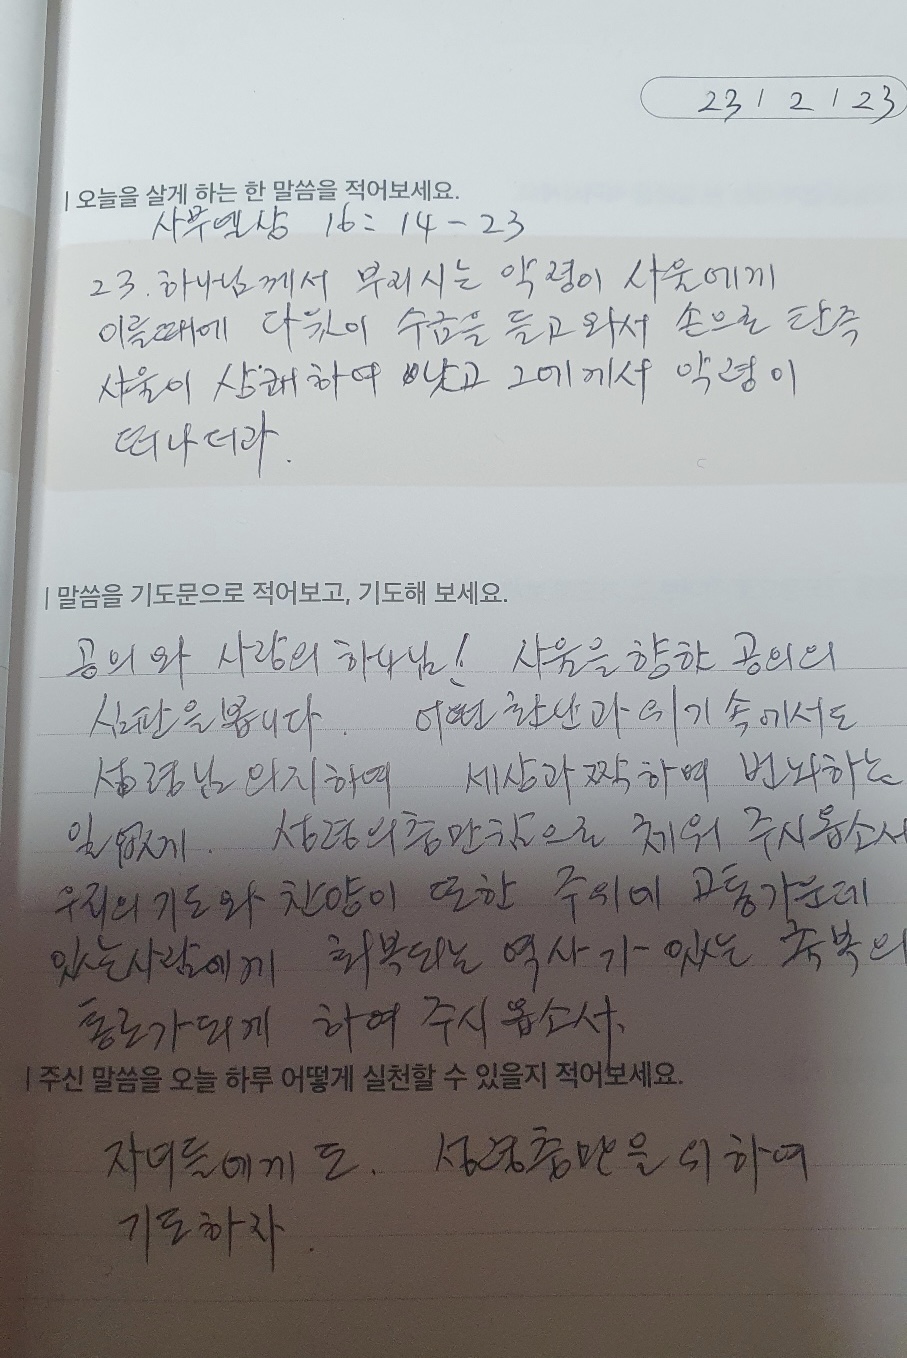 23 / 2 / 23
| 오늘을 살게 하는 한 말씀을 적어보세요.
사무엘상 16: 14 - 23
23. 하나님께서 부리시는 악령이 사울에게
이를때에 다윗이 수금을 들고 와서 손으로 탄즉
사울이 상쾌하여 낫고 그에게서 악령이
떠나더라.
| 말씀을 기도문으로 적어보고, 기도해 보세요.
공의와 사랑의 하나님! 사울을 향한 공의의
심판을 봅니다. 어떤 환난과 위기 속에서도
성령님 의지하여 세상과 짝하여 번뇌하는
일 없게. 성령의충만함으로 채워 주시옵소서
우리의 기도와 찬양이 또한 주위에 고통가운데
있는사람에게 회복되는 역사가 있는 축복의
통로가되게 하여 주시옵소서.
| 주신 말씀을 오늘 하루 어떻게 실천할 수 있을지 적어보세요.
자녀들에게도. 성령충만을 위하여
기도하자.